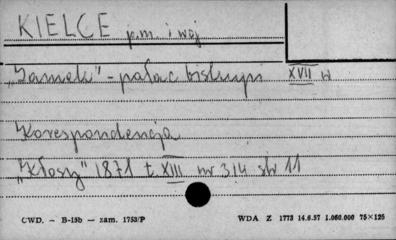 KIELCE p.m. i woj
„Zamek" - pałac biskupi XVII w
Korespondencja
„Kłosy" 1871 t. XIII nr 314 str 11
CWD. - B-15b - zam. 1753/P WDA Z 1773 14.6.57 1.060.000 75×125